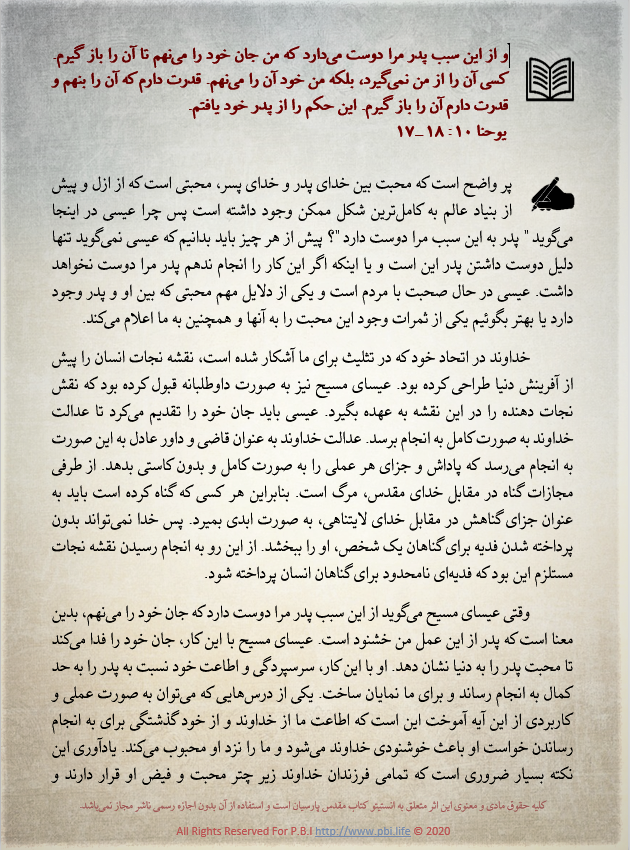 و از این سبب پدر مرا دوست می‌دارد که من جان خود را می‌نهم تا آن را باز گیرم.
کسی آن را از من نمی‌گیرد، بلکه من خود آن را می‌نهم. قدرت دارم که آن را بنهم و
قدرت دارم آن را باز گیرم. این حکم را از پدر خود یافتم.
یوحنا ۱۰ : ۱۸ _ ۱۷
پر واضح است که محبت بین خدای پدر و خدای پسر، محبتی است که از ازل و پیش
از بنیاد عالم به کامل‌ترین شکل ممکن وجود داشته است پس چرا عیسی در اینجا
می‌گوید " پدر به این سبب مرا دوست دارد "؟ پیش از هر چیز باید بدانیم که عیسی نمی‌گوید تنها
دلیل دوست داشتن پدر این است و یا اینکه اگر این کار را انجام ندهم پدر مرا دوست نخواهد
داشت. عیسی در حال صحبت با مردم است و یکی از دلایل مهم محبتی که بین او و پدر وجود
دارد یا بهتر بگوئیم یکی از ثمرات وجود این محبت را به آنها و همچنین به ما اعلام می‌کند.
خداوند در اتحاد خود که در تثلیث برای ما آشکار شده است، نقشه نجات انسان را پیش
از آفرینش دنیا طراحی کرده بود. عیسای مسیح نیز به صورت داوطلبانه قبول کرده بود که نقش
نجات دهنده را در این نقشه به عهده بگیرد. عیسی باید جان خود را تقدیم می‌کرد تا عدالت
خداوند به صورت کامل به انجام برسد. عدالت خداوند به عنوان قاضی و داور عادل به این صورت
به انجام می‌رسد که پاداش و جزای هر عملی را به صورت کامل و بدون کاستی بدهد. از طرفی
مجازات گناه در مقابل خدای مقدس، مرگ است. بنابراین هر کسی که گناه کرده است باید به
عنوان جزای گناهش در مقابل خدای لایتناهی، به صورت ابدی بمیرد. پس خدا نمی‌تواند بدون
پرداخته شدن فدیه برای گناهان یک شخص، او را ببخشد. از این رو به انجام رسیدن نقشه نجات
مستلزم این بود که فدیه‌ای نامحدود برای گناهان انسان پرداخته شود.
وقتی عیسای مسیح می‌گوید از این سبب پدر مرا دوست دارد که جان خود را می‌نهم، بدین
معنا است که پدر از این عمل من خشنود است. عیسای مسیح با این کار، جان خود را فدا می‌کند
تا محبت پدر را به دنیا نشان دهد. او با این کار، سرسپردگی و اطاعت خود نسبت به پدر را به حد
کمال به انجام رساند و برای ما نمایان ساخت. یکی از درس‌هایی که می‌توان به صورت عملی و
کاربردی از این آیه آموخت این است که اطاعت ما از خداوند و از خود گذشتگی برای به انجام
رساندن خواست او باعث خوشنودی خداوند می‌شود و ما را نزد او محبوب می‌کند. یادآوری این
نکته بسیار ضروری است که تمامی فرزندان خداوند زیر چتر محبت و فیض او قرار دارند و
کلیه حقوق مادی و معنوی این اثر متعلق به انستیتو کتاب مقدس پارسیان است و استفاده از آن بدون اجازه رسمی ناشر مجاز نمی‌باشد.
All Rights Reserved For P.B.I http://www.pbi.life © 2020